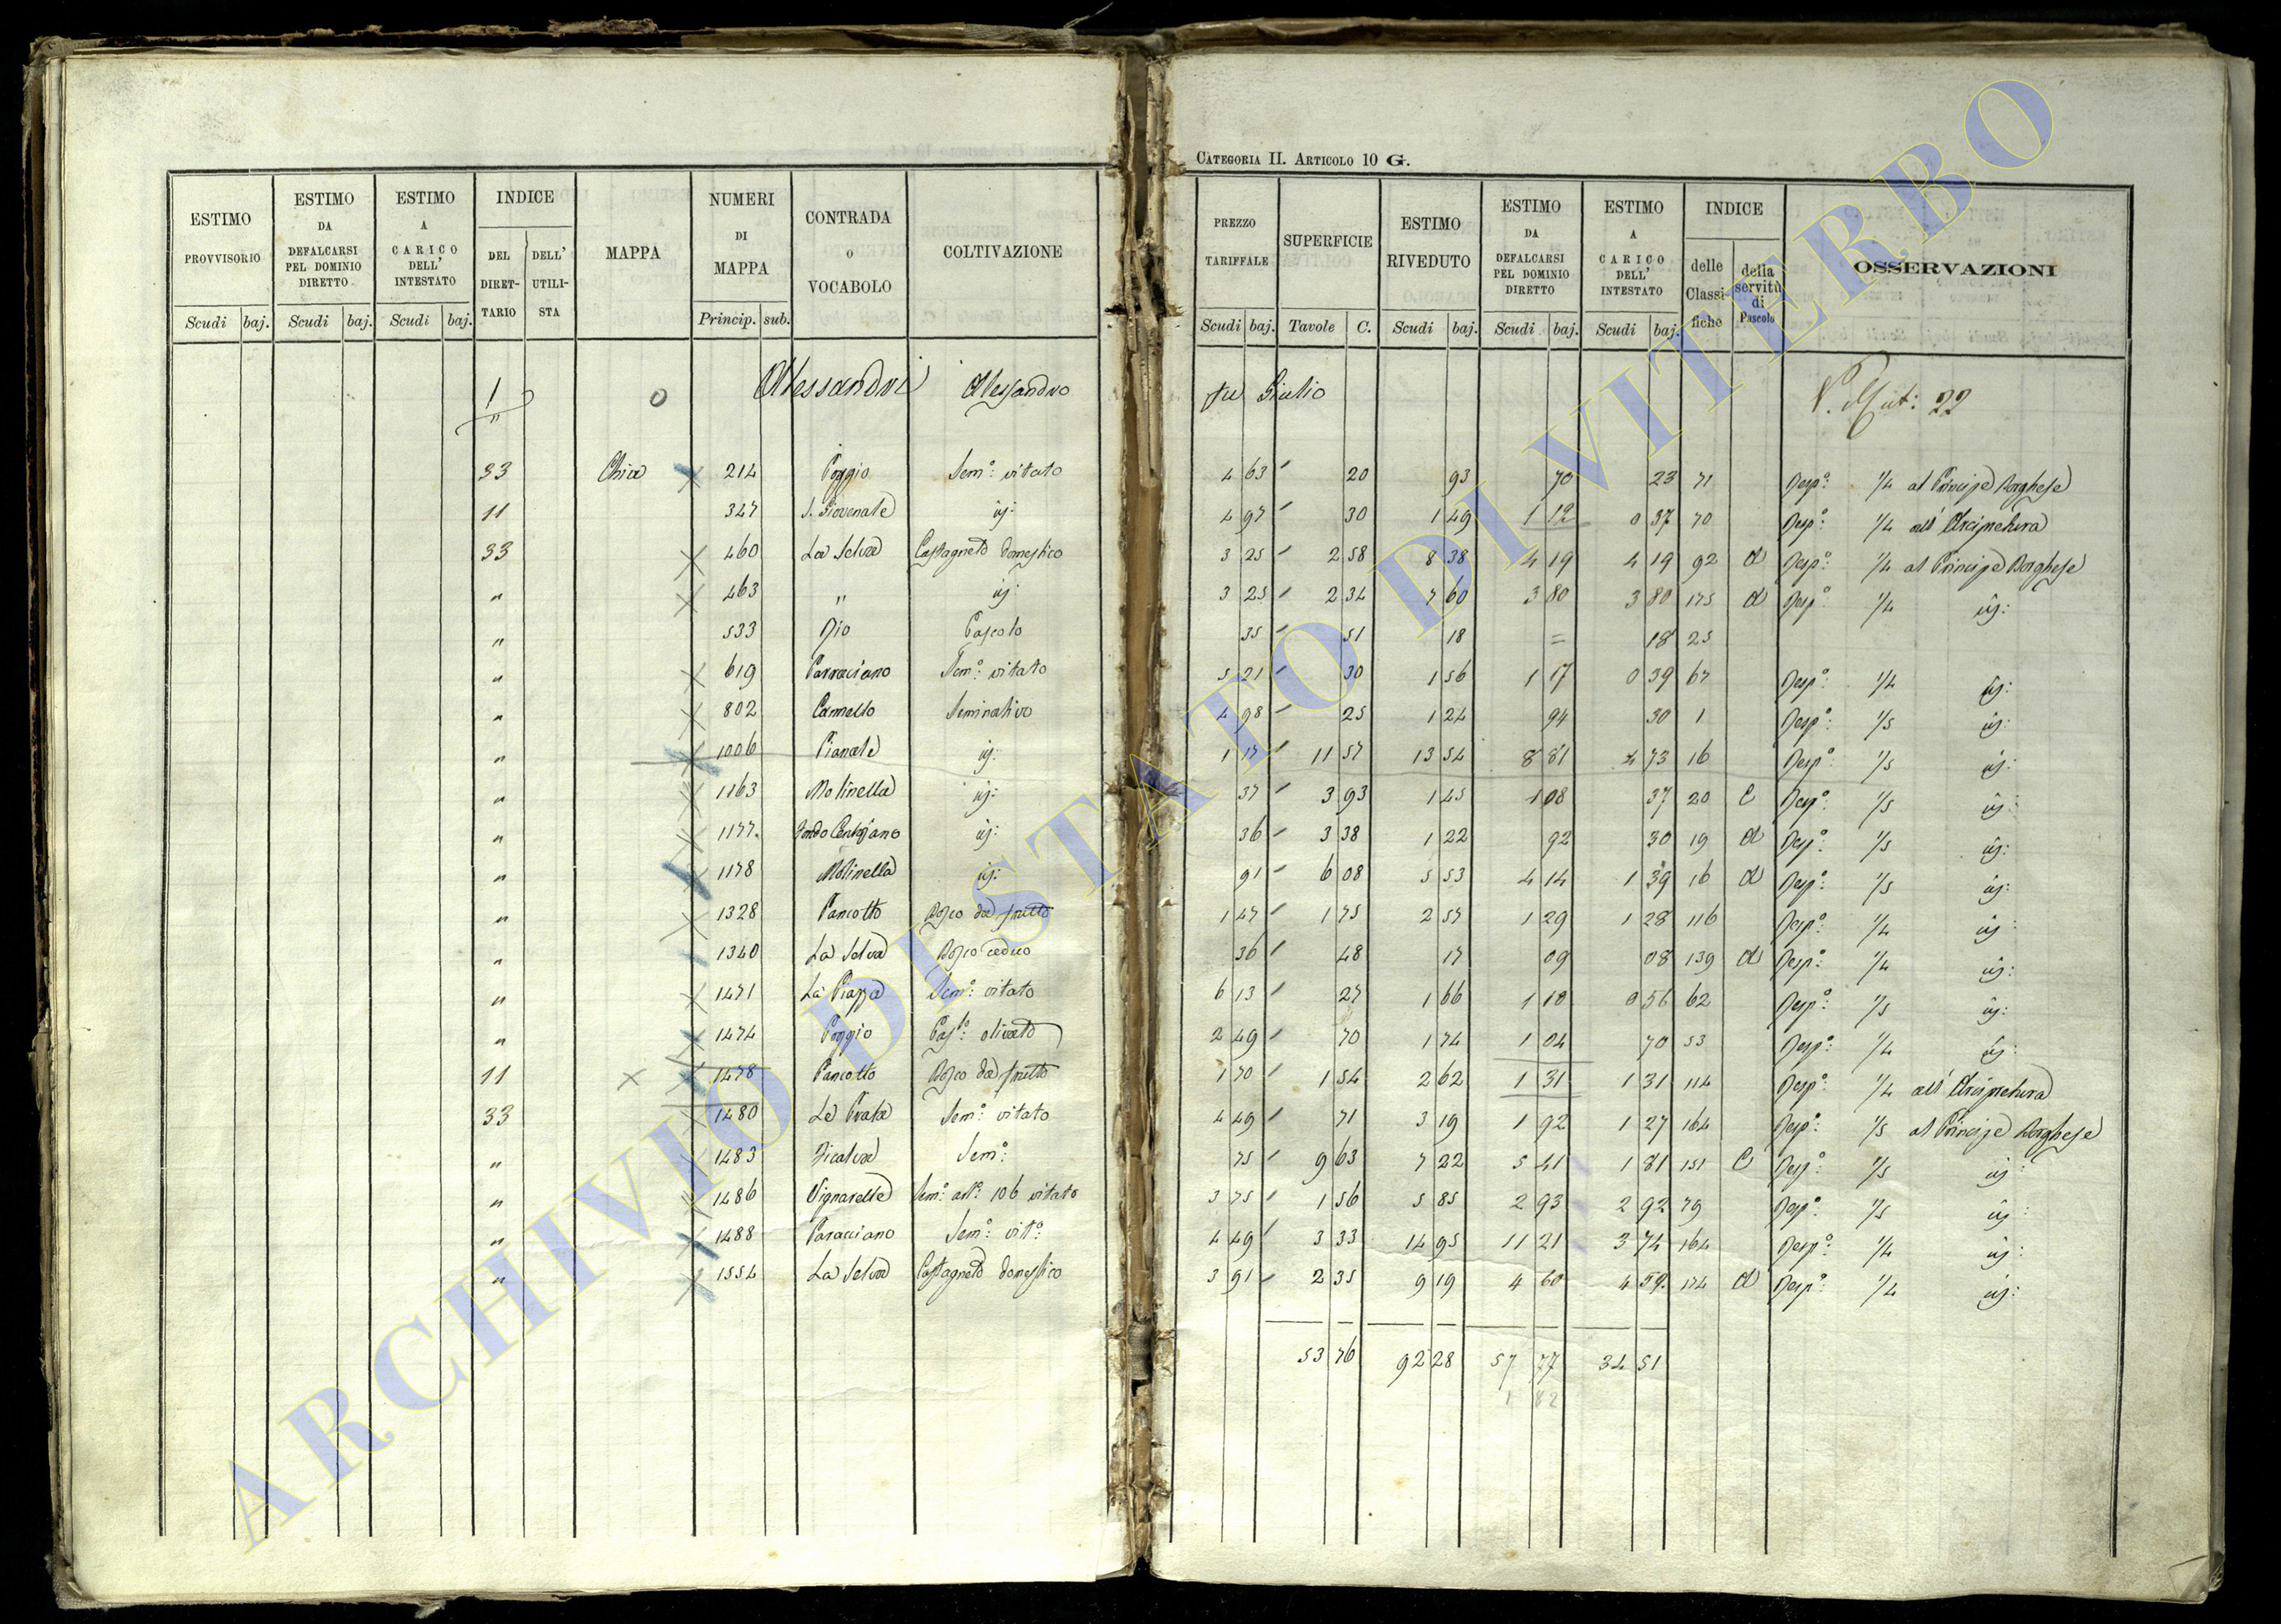 CATEGORIA II. ARTICOLO 10 G.
ESTIMO PROVVISORIO | ESTIMO DA DEFALCARSI PEL DOMINIO DIRETTO | ESTIMO A CARICO DELL' INTESTATO | INDICE DEL DIRETTARIO | DELL' UTILISTA | MAPPA | NUMERI DI MAPPA | CONTRADA O VOCABOLO | COLTIVAZIONE | PREZZO TARIFFALE | SUPERFICIE | ESTIMO RIVEDUTO | ESTIMO DA DEFALCARSI PEL DOMINIO DIRETTO | ESTIMO A CARICO DELL' INTESTATO | INDICE delle Classifiche | della servitù di Pascolo | OSSERVAZIONI
Scudi | baj. | Scudi | baj. | Scudi | baj. | Princip. | sub. | Scudi | baj. | Tavole | C. | Scudi | baj. | Scudi | baj. | Scudi | baj.
1 0 Alessandri Alessandro fu Giulio V. Mut: 22
"
33 Chia 214 Poggio Sem.o vitato 4 63 20 93 70 23 71 Resp.o: 1/4 al Principe Borghese
11 347 S. Giovenale id: 4 97 30 1 49 1 12 0 37 70 Resp.o: 1/4 all' Arcipretura
33 460 La Selva Castagneto domestico 3 25 2 58 8 38 4 19 4 19 92 a Resp.o: 1/4 al Principe Borghese
" 463 " id: 3 25 2 34 7 60 3 80 3 80 175 a Resp.o: 1/4 id:
" 533 Rio Pascolo 35 51 18 = 18 25
" 619 Parracciano Sem.o vitato 5 21 30 1 56 1 17 0 39 67 Resp.o: 1/4 id:
" 802 Cannello Seminativo 4 98 25 1 24 94 30 1 Resp.o: 1/5 id:
" 1006 Pianale id: 1 17 11 57 13 54 8 81 4 73 16 Resp.o: 1/5 id:
" 1163 Molinella id: 37 3 93 1 45 1 08 37 20 C Resp.o: 1/5 id:
" 1177 id: 36 3 38 1 22 92 30 19 a Resp.o: 1/5 id:
" 1178 Molinella id: 91 6 08 5 53 4 14 1 39 16 a Resp.o: 1/5 id:
" 1328 Pancotto Bosco da frutto 1 47 1 75 2 57 1 29 1 28 116 Resp.o: 1/4 id:
" 1340 La Selva Bosco ceduo 36 48 17 09 08 139 a Resp.o: 1/4 id:
" 1471 La Piazza Sem.o vitato 6 13 27 1 66 1 10 0 56 62 Resp.o: 1/5 id:
" 1474 Poggio Pas.lo olivato 2 49 70 1 74 1 04 70 53 Resp.o: 1/4 id:
11 1478 Pancotto Bosco da frutto 1 70 1 54 2 62 1 31 1 31 114 Resp.o: 1/4 all' Arcipretura
33 1480 Le Prata Sem.o vitato 4 49 71 3 19 1 92 1 27 164 Resp.o: 1/5 al Principe Borghese
" 1483 Sem.o 75 9 63 7 22 5 41 1 81 151 C Resp.o: 1/5 id:
" 1486 Vignarelle Sem.o art.o 106 vitato 3 75 1 56 5 85 2 93 2 92 79 Resp.o: 1/5 id:
" 1488 Paracciano Sem.o vit.o 4 49 3 33 14 95 11 21 3 74 164 Resp.o: 1/4 id:
" 1554 La Selva Castagneto domestico 3 91 2 35 9 19 4 60 4 59 174 a Resp.o: 1/4 id:
53 76 92 28 57 77 34 51
1 82
ARCHIVIO DI STATO DI VITERBO